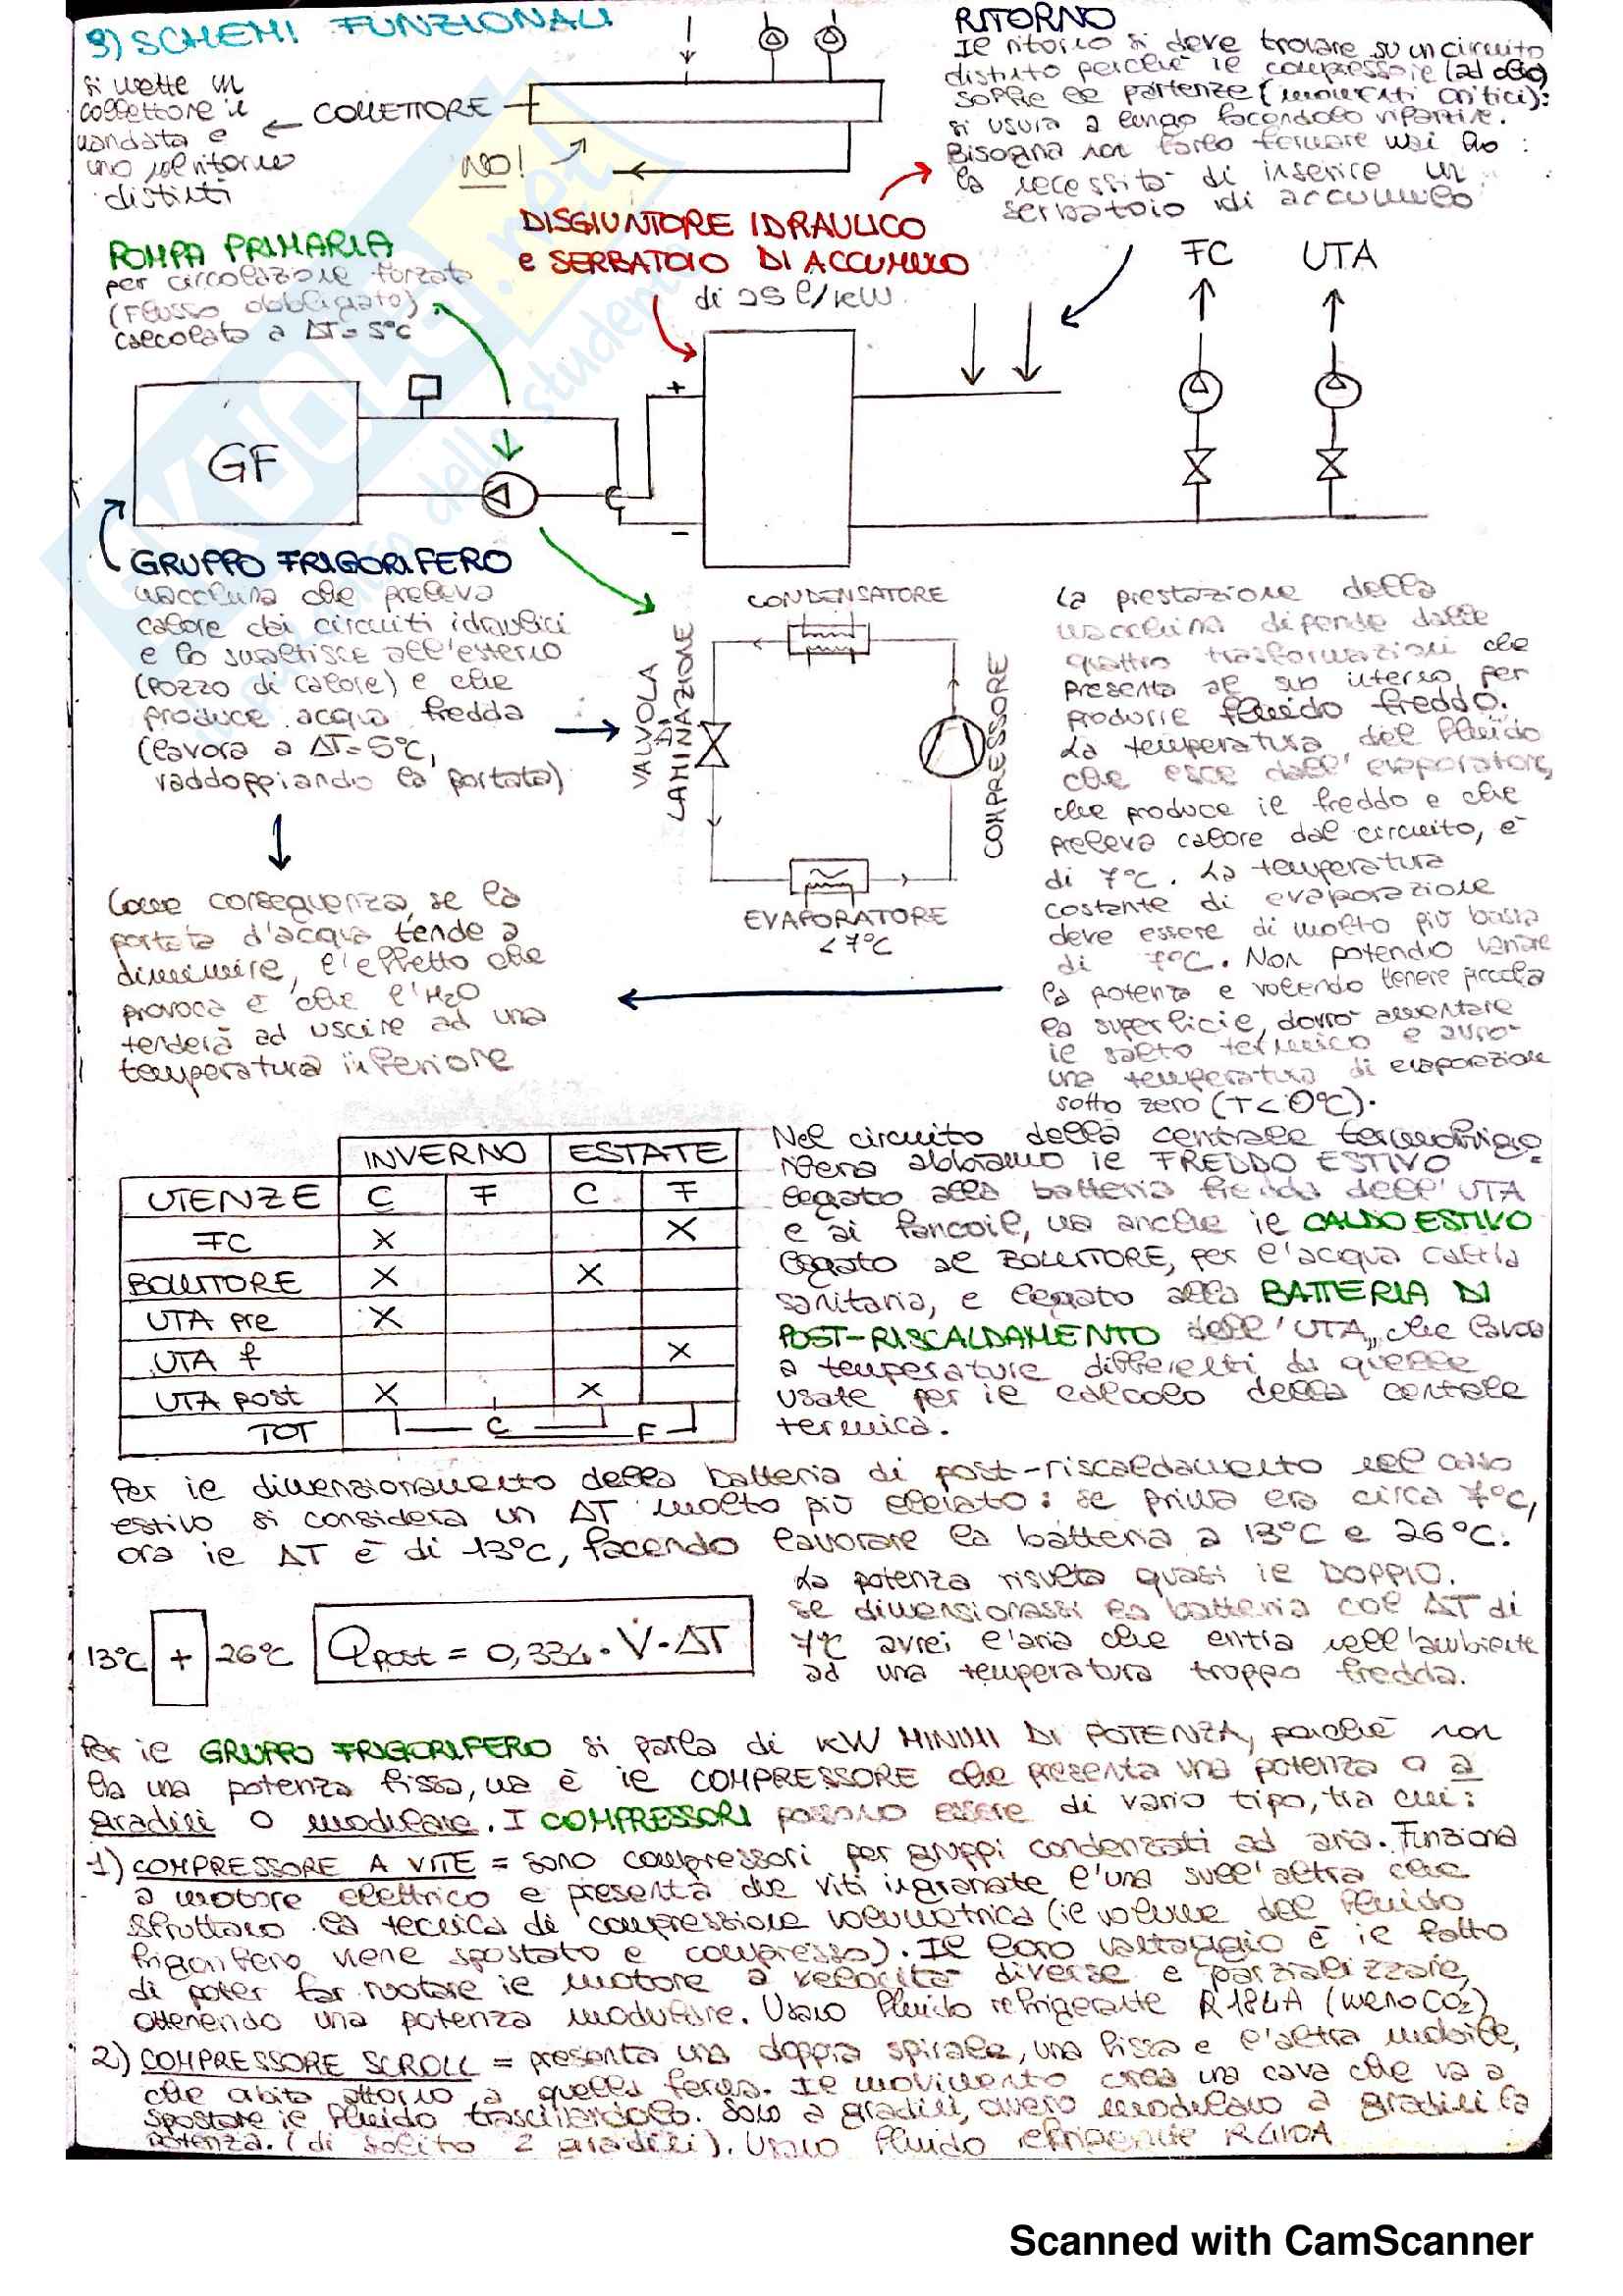 9) SCHEMI FUNZIONALI
si mette un
collettore di
mandata e
uno di ritorno
distinti
COLLETTORE
NO!
RITORNO
Il ritorno si deve trovare su un circuito
distinto perchè il compressore (ad olio)
soffre le partenze (momenti critici):
si usura a lungo facendolo ripartire.
Bisogna non farlo fermare mai. Ho
la necessità di inserire un
serbatoio di accumulo
DISGIUNTORE IDRAULICO
e SERBATOIO DI ACCUMULO
di 25 l/kW
POMPA PRIMARIA
per circolazione forzata
(flusso obbligato)
calcolata a ΔT=5°C
FC
UTA
GF
+
-
GRUPPO FRIGORIFERO
macchina che preleva
calore dai circuiti idraulici
e lo smaltisce all'esterno
(pozzo di calore) e che
produce acqua fredda
(lavora a ΔT=5°C,
raddoppiando la portata)
CONDENSATORE
VALVOLA A LAMINAZIONE
COMPRESSORE
EVAPORATORE
<7°C
La prestazione della
macchina dipende dalle
quattro trasformazioni che
presenta al suo interno, per
produrre fluido freddo.
La temperatura del fluido
che esce dall'evaporatore,
che produce il freddo e che
preleva calore dal circuito, è
di 7°C. La temperatura
costante di evaporazione
deve essere di molto più bassa
di 7°C. Non potendo variare
la potenza e volendo tenere piccola
la superficie, dovrò aumentare
il salto termico e avrò
una temperatura di evaporazione
sotto zero (T<0°C).
Come conseguenza, se la
portata d'acqua tende a
diminuire, l'effetto che
provoca è che l'H2O
tenderà ad uscire ad una
temperatura inferiore
INVERNO ESTATE
UTENZE C F C F
FC X X
BOLLITORE X X
UTA pre X
UTA f X
UTA post X X
TOT C F
Nel circuito della centrale termofrigo-
rifera abbiamo il FREDDO ESTIVO
legato alla batteria fredda dell'UTA
e ai fancoil, ma anche il CALDO ESTIVO
legato al BOLLITORE, per l'acqua calda
sanitaria, e legato alla BATTERIA DI
POST-RISCALDAMENTO dell'UTA, che lavora
a temperature differenti da quelle
usate per il calcolo della centrale
termica.
Per il dimensionamento della batteria di post-riscaldamento nel caso
estivo si considera un ΔT molto più elevato: se prima era circa 7°C,
ora il ΔT è di 13°C, facendo lavorare la batteria a 13°C e 26°C.
La potenza risulta quasi il DOPPIO.
Se dimensionassi la batteria col ΔT di
7°C avrei l'aria che entra nell'ambiente
ad una temperatura troppo fredda.
13°C + 26°C
Qpost = 0,334 · V̇ · ΔT
Per il GRUPPO FRIGORIFERO si parla di KW MINIMI DI POTENZA, poichè non
ha una potenza fissa, ma è il COMPRESSORE che presenta una potenza o a
gradini o modulare. I COMPRESSORI possono essere di vario tipo, tra cui:
1) COMPRESSORE A VITE = sono compressori per gruppi condensati ad aria. Funziona
a motore elettrico e presenta due viti ingranate l'una sull'altra che
sfruttano la tecnica di compressione volumetrica (il volume del fluido
frigorifero viene spostato e compresso). Il loro vantaggio è il fatto
di poter far ruotare il motore a velocità diverse e parzializzare,
ottenendo una potenza modulare. Usano fluido refrigerante R134A (meno CO2)
2) COMPRESSORE SCROLL = presenta una doppia spirale, una fissa e l'altra mobile,
che orbita attorno a quella ferma. Il movimento crea una cava che va a
spostare il fluido trascinandolo. Sono a gradini, ovvero modulano a gradini la
potenza. (di solito 2 gradini). Usano fluido refrigerante R410A
SKUOLA.net
Scanned with CamScanner